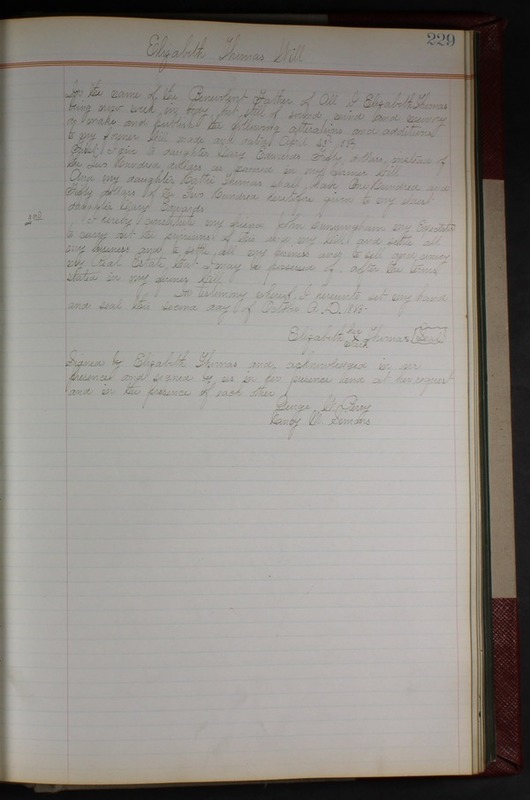 229
Elizabeth Thomas Will
In the name of the Benevolent Father of All I Elizabeth Thomas
being now weak in body, but still of sound mind and memory
do make and publish the following alterations and additions
to my former Will made and dated April 23rd
First, I give to daughter Mary Edwards Fifty dollars, instead of
the Two Hundred dollars as named in my former Will
And my daughter Thomas shall have One Hundred and
Fifty dollars of the Two Hundred heretofore given to my
daughter Mary Edwards
2nd I hereby constitute my friend John Cunningham my Executor
to carry out the provisions of this and my Will and settle all
my business and to settle all my and to sell and convey
my Real Estate that I may be possessed of, after the terms
stated in my former Will.
In testimony whereof I hereunto set my hand
and seal this second day of October A. D.
Elizabeth her mark Thomas Seal
Signed by Elizabeth Thomas and acknowledged in our
presence and signed by us in her presence and at her request
and in the presence of each other
George W.
Nancy M. Simons